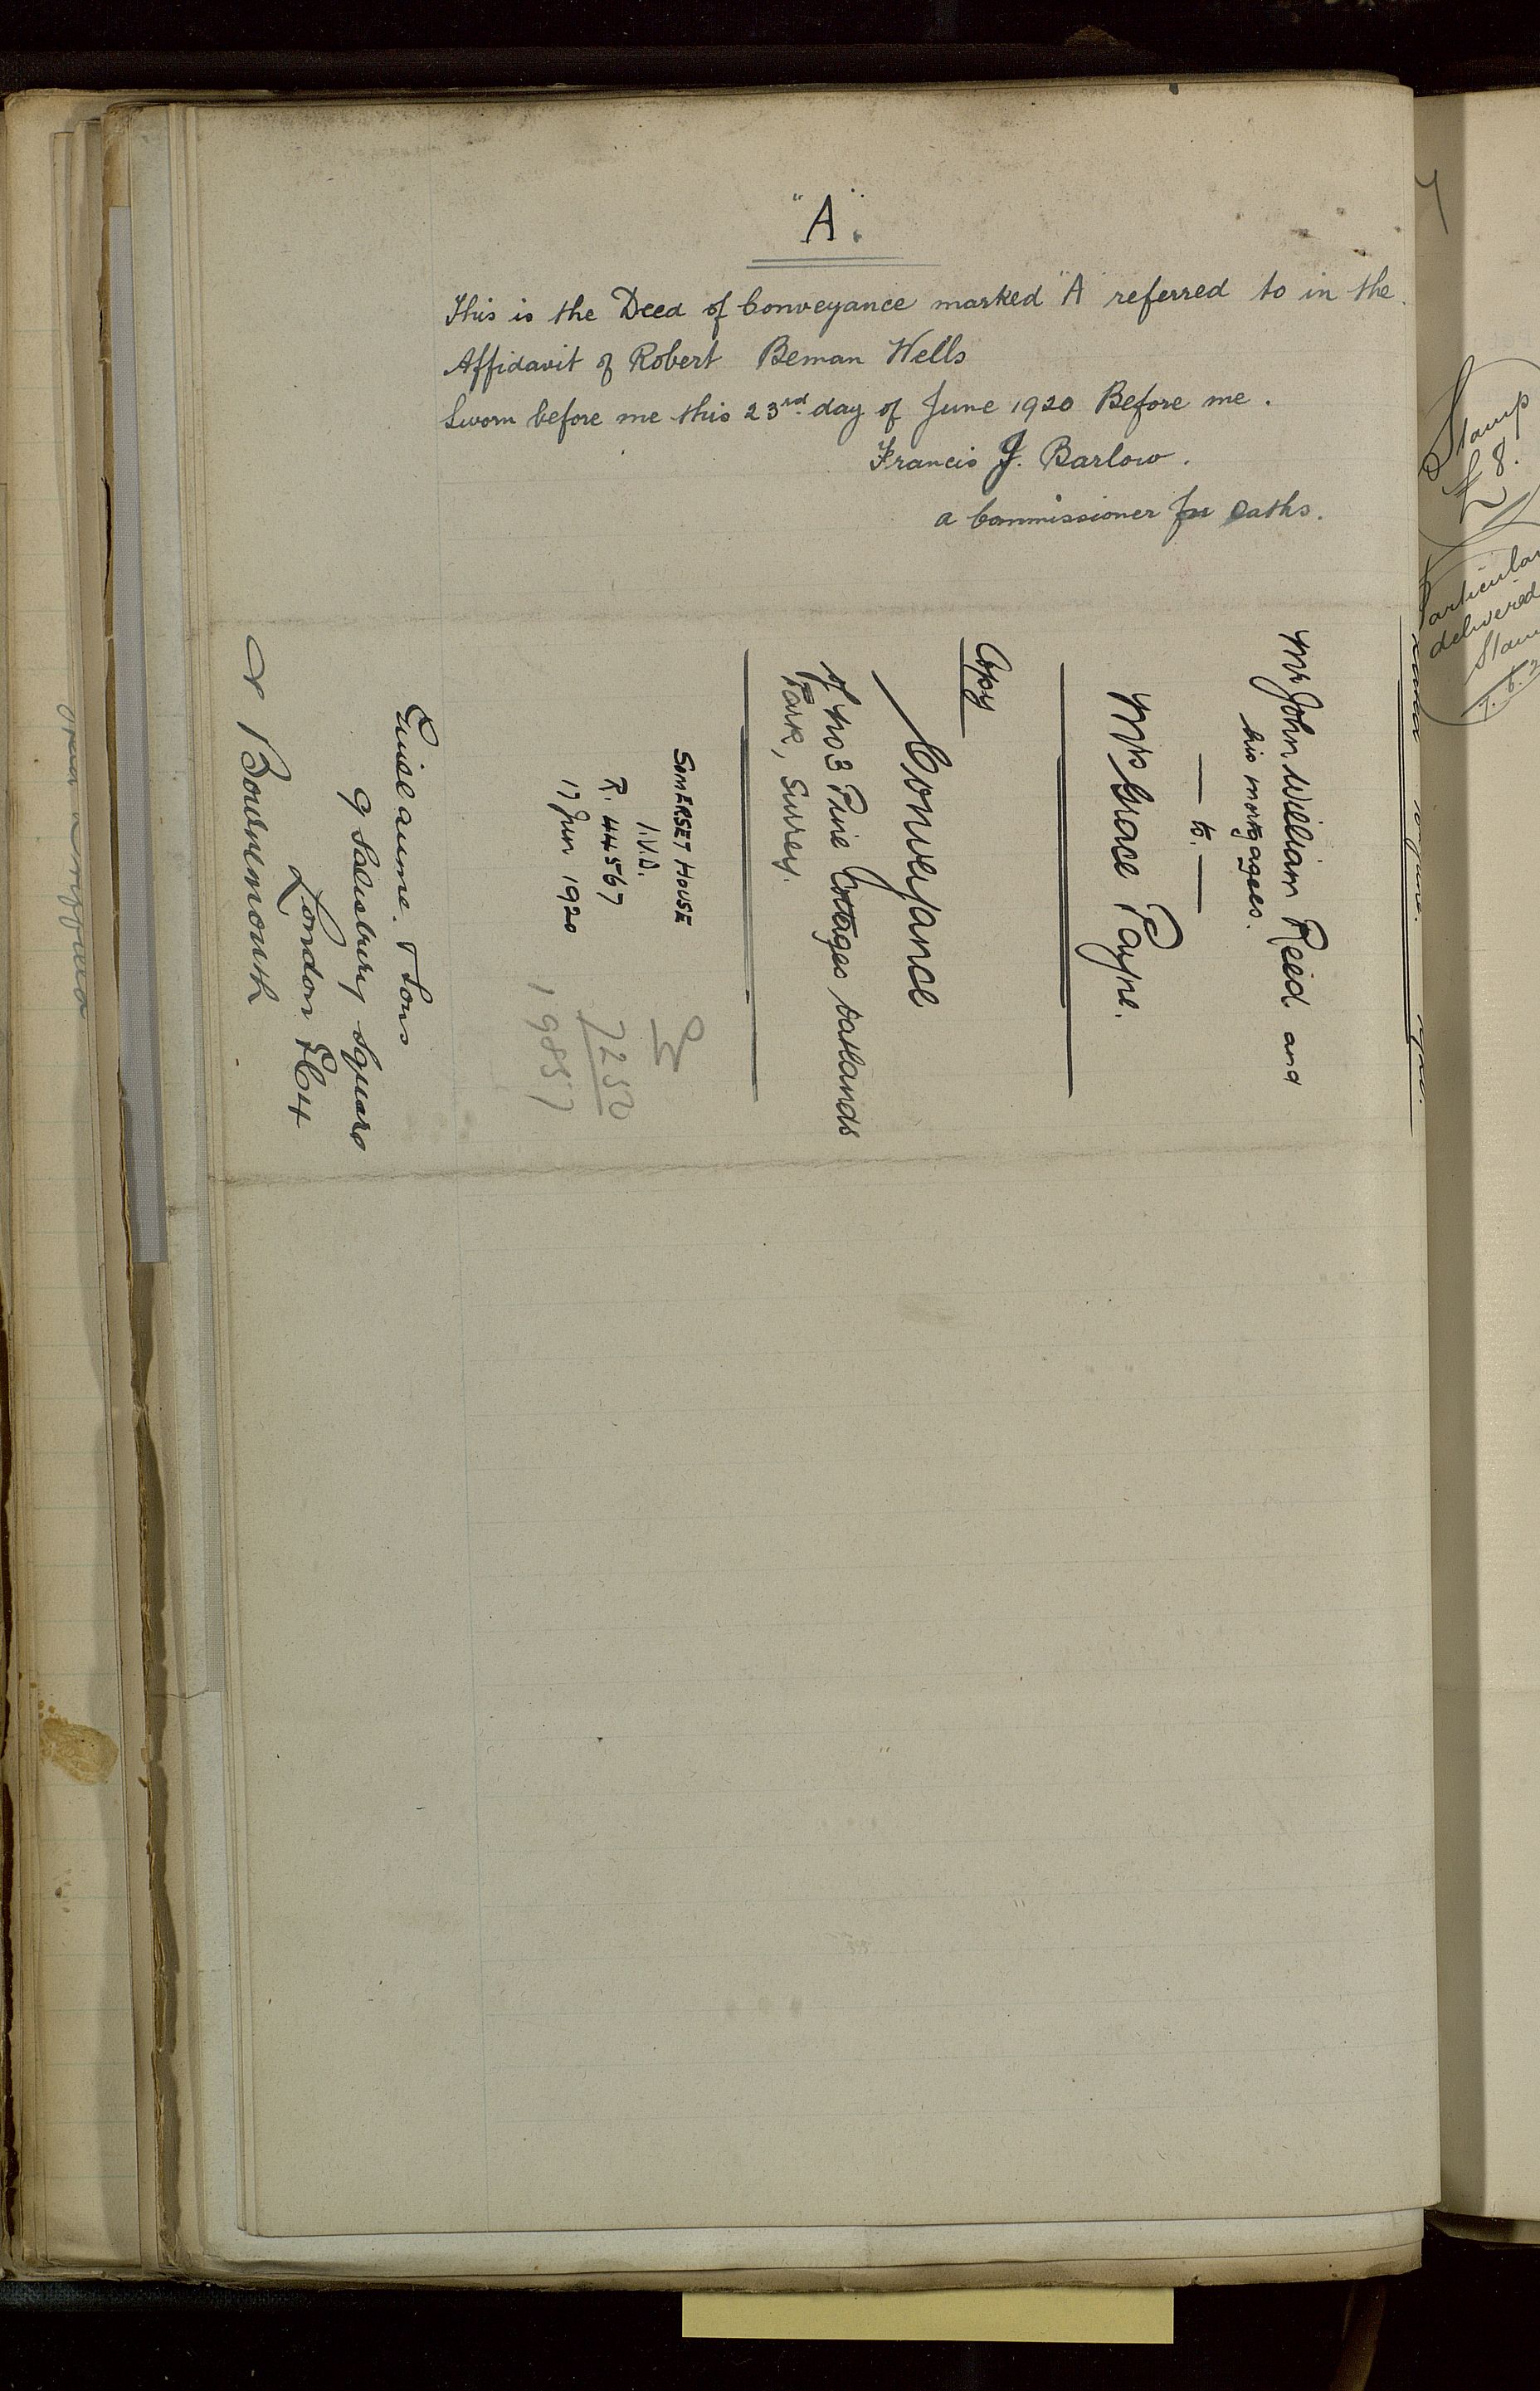 "A".
This is the Deed of Conveyance marked "A" referred to in the
Affidavit of Robert Beman Wells
Sworn before me this 23rd day of June 1920 Before me.
Francis J. Barlow.
a Commissioner for Oaths.
Mr John William Reid and
his mortgagees.
— to —
Mrs Grace Payne.
Copy
Conveyance
of No 3 Pine Cottages Oatlands
Park, Surrey.
SOMERSET HOUSE
I.V.D.
R. 44567
17 Jun 1920
7250
19857
Guillaume & Sons
9 Salisbury Square
London EC4
& Bournemouth
Stamp
£8.
delivered